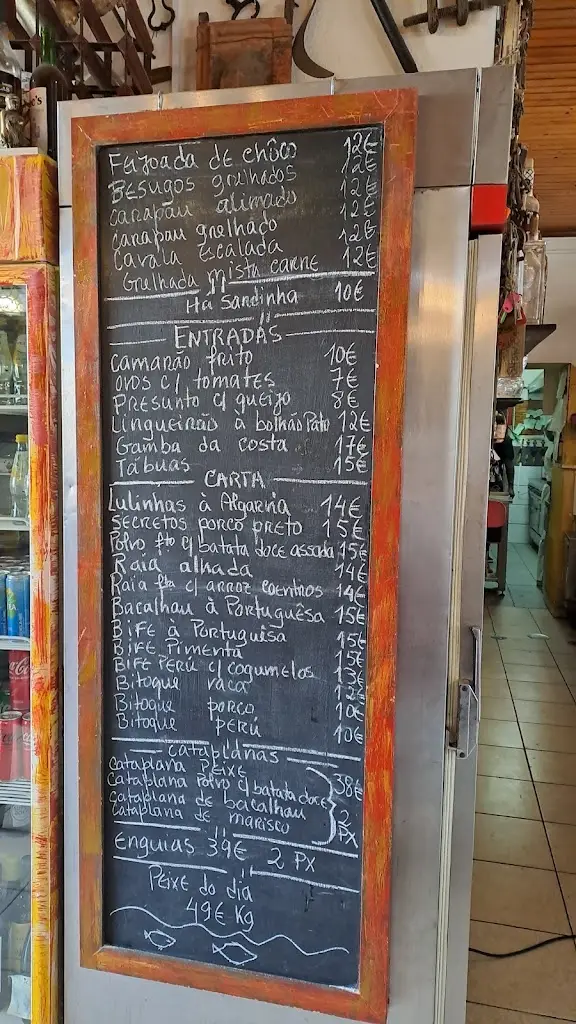 Feijoada de chôco 12€
Besugos grelhados 12€
carapau alimado 12€
carapau grelhado 12€
Cavala Escalada 12€
Grelhada Mista carne 12€
Há Sardinha 10€
ENTRADAS
camarão frito 10€
ovos c/ tomates 7€
PRESUNTO c/ queijo 8€
Lingueirão à bolhão Pato 12€
Gamba da costa 17€
Tábuas 15€
CARTA
Lulinhas à Algarvia 14€
Secretos porco preto 15€
Polvo fto c/ batata doce assada 15€
Raia alhada 14€
Raia fta c/ arroz coentros 14€
Bacalhau à Portuguêsa 15€
Bife à Portuguêsa 15€
Bife Pimenta 15€
Bife Perú c/ cogumelos 13€
Bitoque vaca 12€
Bitoque porco 10€
Bitoque PERÚ 10€
cataplanas
Cataplana PEIXE
Cataplana Polvo c/ batata doce 38€
Cataplana de bacalhau 2
Cataplana de marisco PX
Enguias 39€ 2 PX
Peixe do dia
49€ Kg